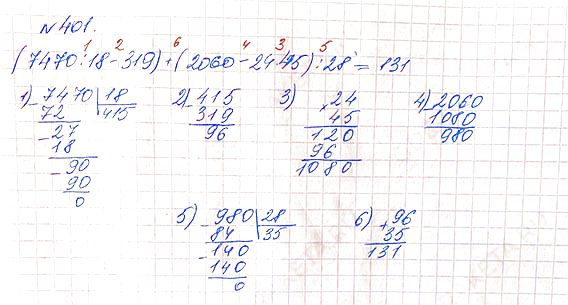 №401.
1 2 6 4 3 5
(7470:18-319)+(2060-24·45):28=131
1) 7470 | 18 2) 415 3) 24 4) 2060
- 72 | 415 - 319 × 45 - 1080
- 27 96 120 980
18 96
- 90 1080
90
0
5) 980 | 28 6) 96
- 84 | 35 + 35
- 140 131
140
0